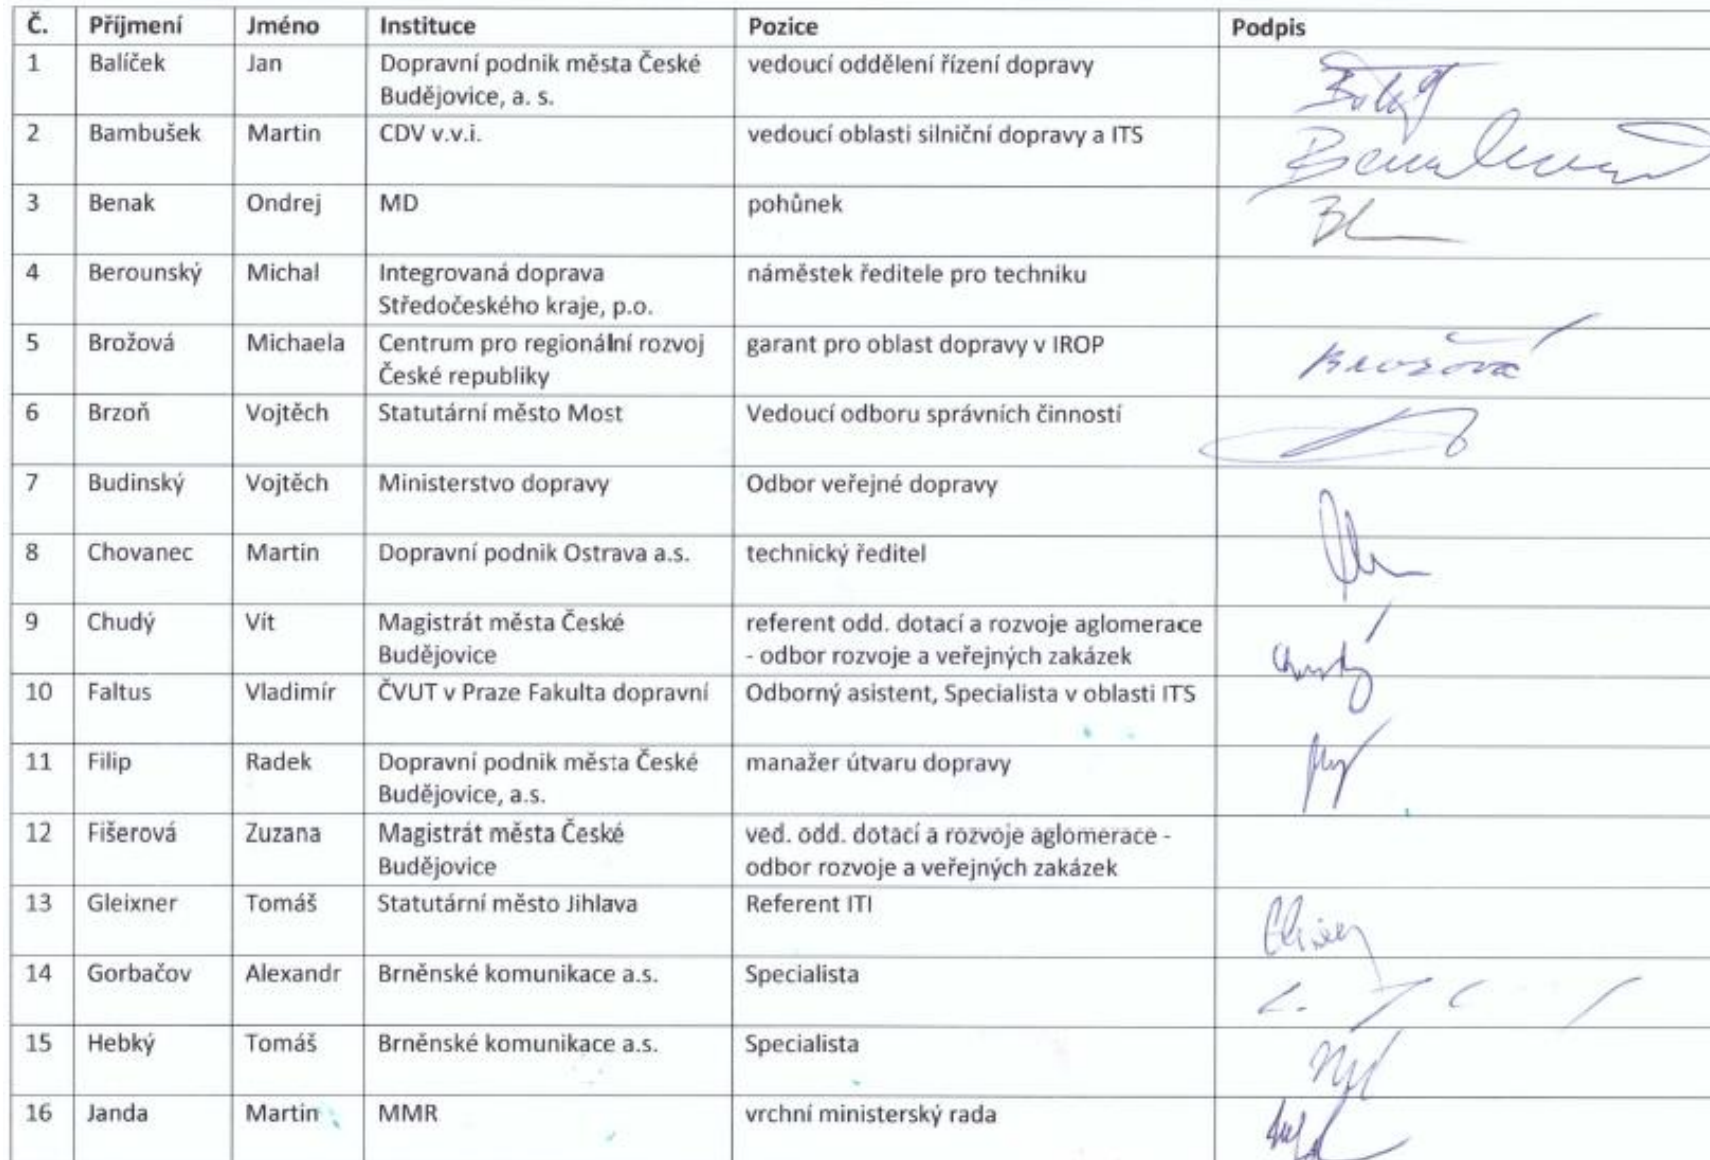 Č. Příjmení Jméno Instituce Pozice Podpis
1 Balíček Jan Dopravní podnik města České vedoucí oddělení řízení dopravy
Budějovice, a. s.
2 Bambušek Martin CDV v.v.i. vedoucí oblasti silniční dopravy a ITS
3 Benak Ondrej MD pohůnek
4 Berounský Michal Integrovaná doprava náměstek ředitele pro techniku
Středočeského kraje, p.o.
5 Brožová Michaela Centrum pro regionální rozvoj garant pro oblast dopravy v IROP Brožová
České republiky
6 Brzoň Vojtěch Statutární město Most Vedoucí odboru správních činností
7 Budinský Vojtěch Ministerstvo dopravy Odbor veřejné dopravy
8 Chovanec Martin Dopravní podnik Ostrava a.s. technický ředitel
9 Chudý Vít Magistrát města České referent odd. dotací a rozvoje aglomerace Chudý
Budějovice - odbor rozvoje a veřejných zakázek
10 Faltus Vladimír ČVUT v Praze Fakulta dopravní Odborný asistent, Specialista v oblasti ITS
11 Filip Radek Dopravní podnik města České manažer útvaru dopravy
Budějovice, a.s.
12 Fišerová Zuzana Magistrát města České ved. odd. dotací a rozvoje aglomerace -
Budějovice odbor rozvoje a veřejných zakázek
13 Gleixner Tomáš Statutární město Jihlava Referent ITI
14 Gorbačov Alexandr Brněnské komunikace a.s. Specialista
15 Hebký Tomáš Brněnské komunikace a.s. Specialista
16 Janda Martin MMR vrchní ministerský rada